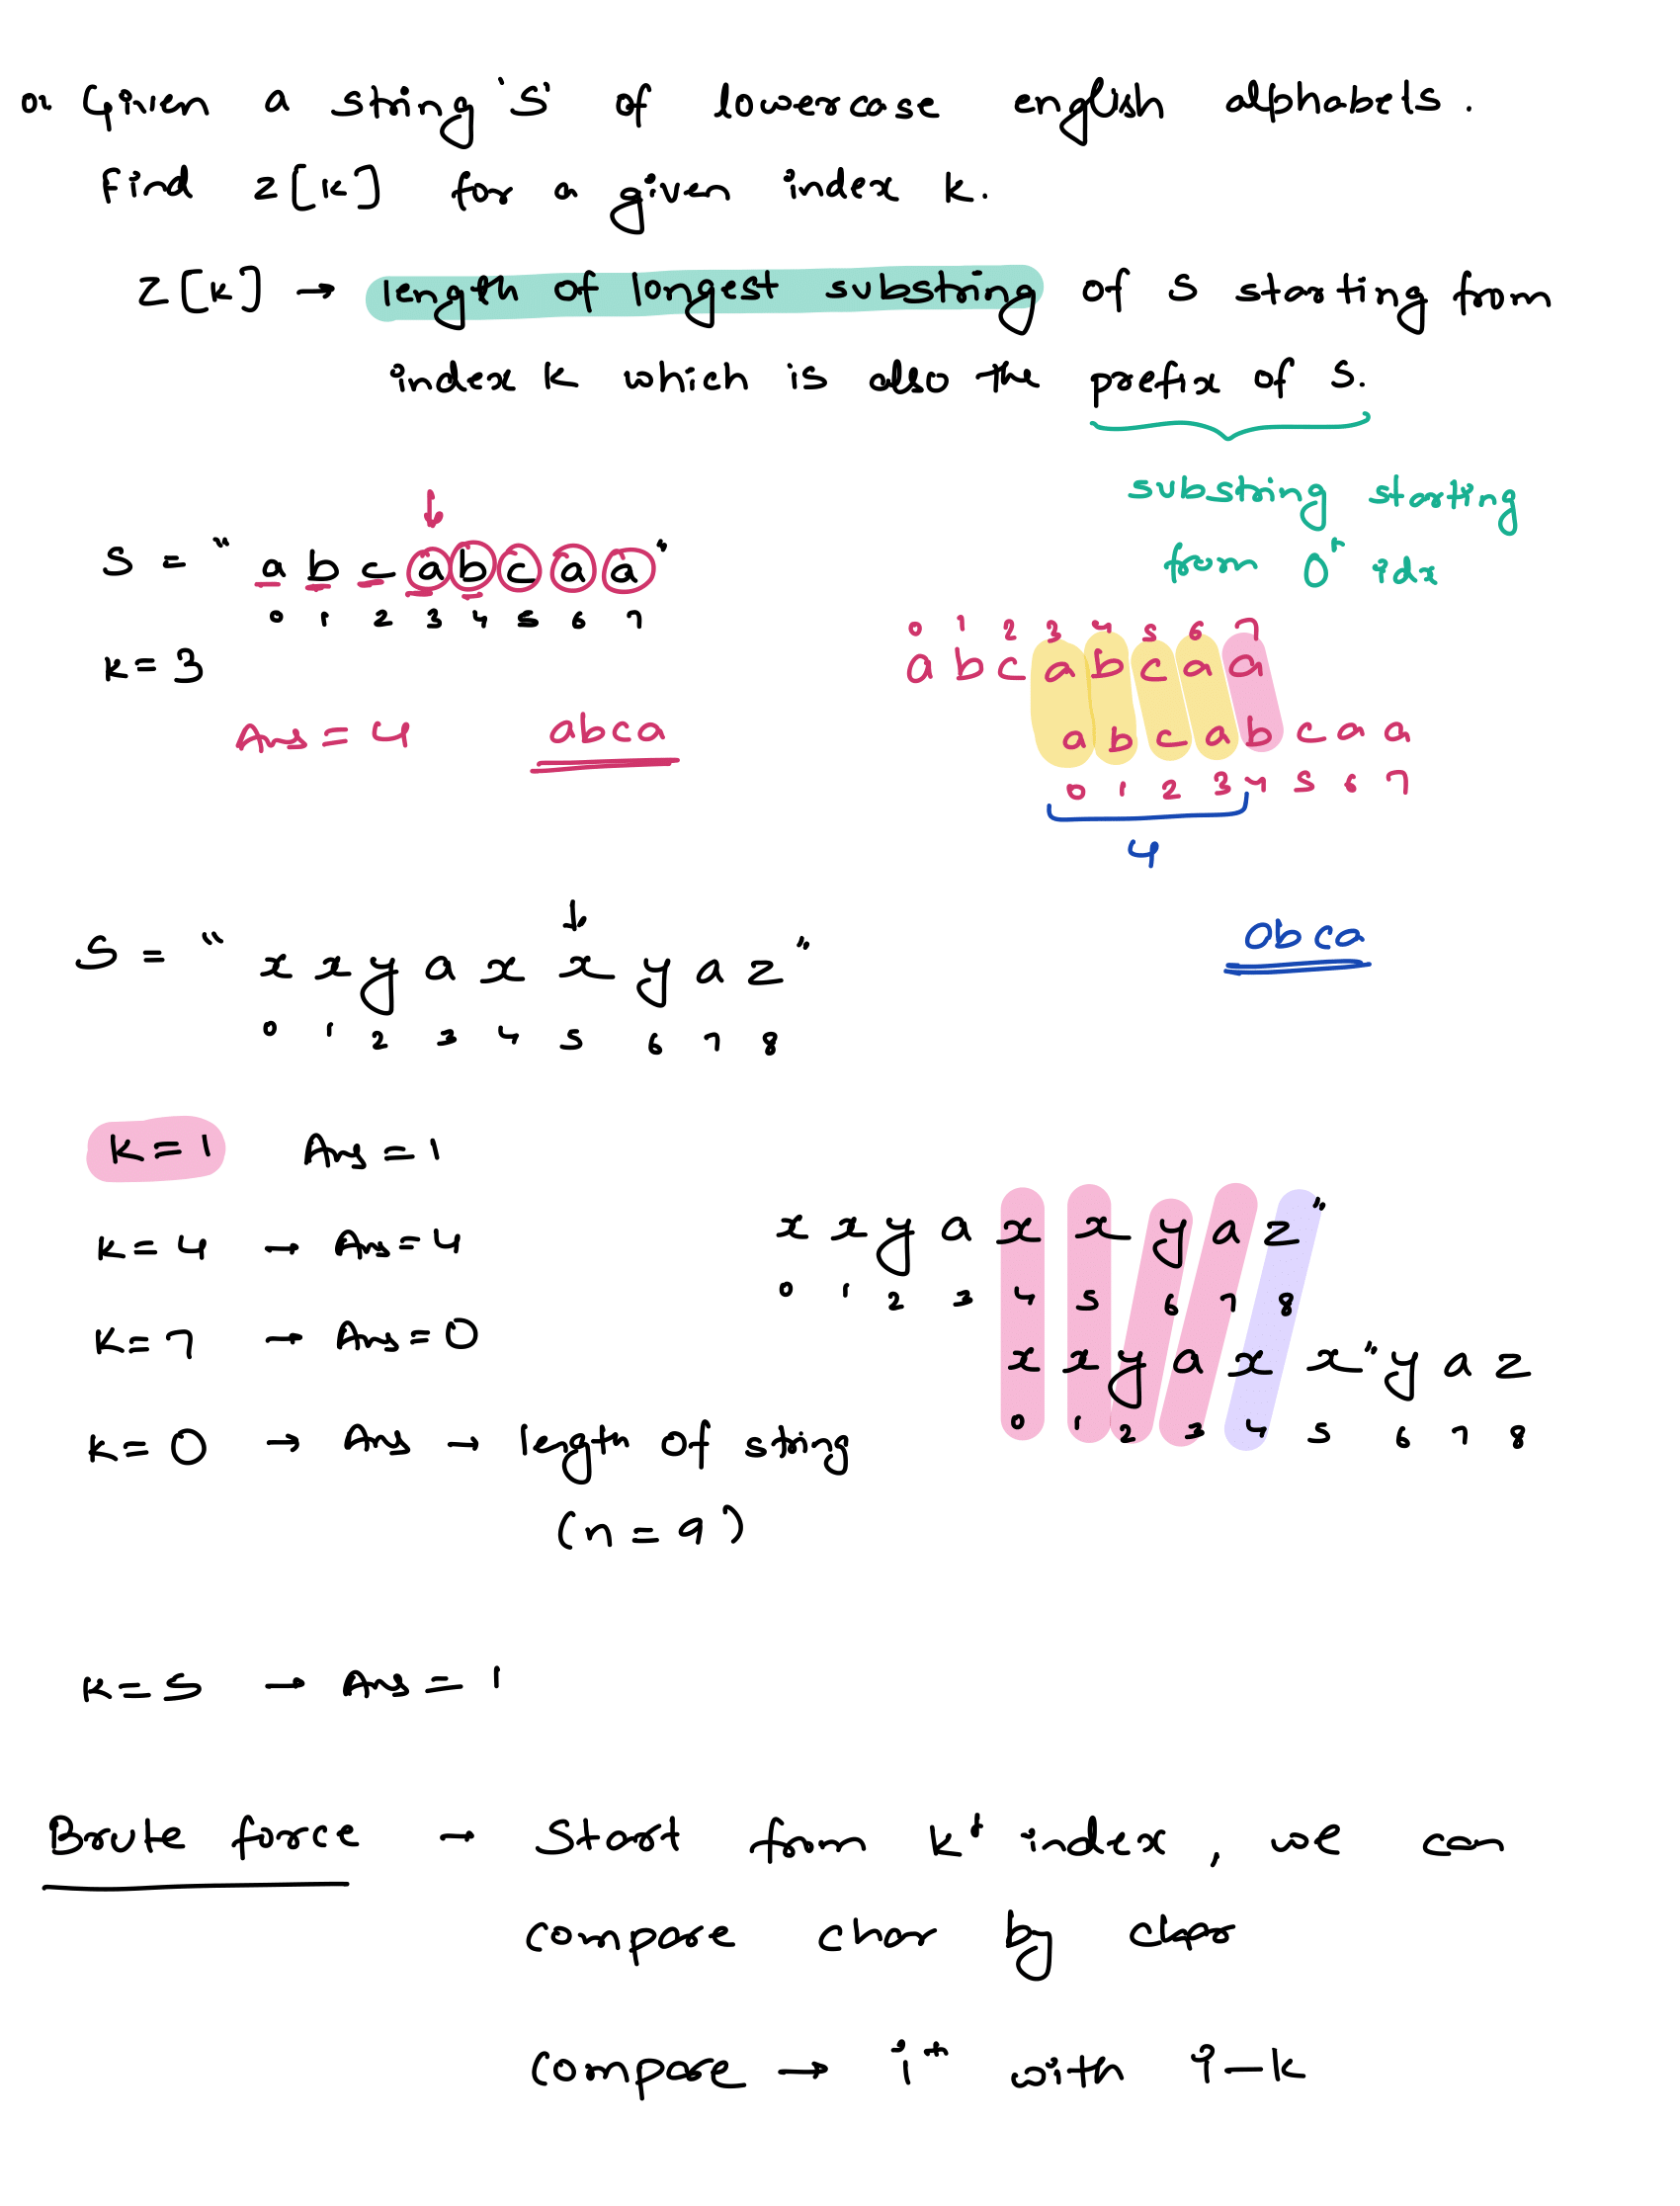 Q: Given a string 'S' of lowercase english alphabets.
Find Z[k] for a given index k.
Z[k] → length of longest substring of S starting from
index k which is also the prefix of S.
substring starting
from 0th idx
S = " a b c a b c a a "
0 1 2 3 4 5 6 7
k = 3
Ans = 4 abca
0 1 2 3 4 5 6 7
a b c a b c a a
a b c a b c a a
0 1 2 3 4 5 6 7
4
abca
S = " x x y a x x y a z "
0 1 2 3 4 5 6 7 8
k = 1 Ans = 1
k = 4 → Ans = 4
k = 7 → Ans = 0
k = 0 → Ans → length of string
(n = 9)
x x y a x x y a z "
0 1 2 3 4 5 6 7 8
x x y a x x " y a z
0 1 2 3 4 5 6 7 8
k = 5 → Ans = 1
Brute force → Start from kth index, we can
compare char by char
compare → ith with i-k